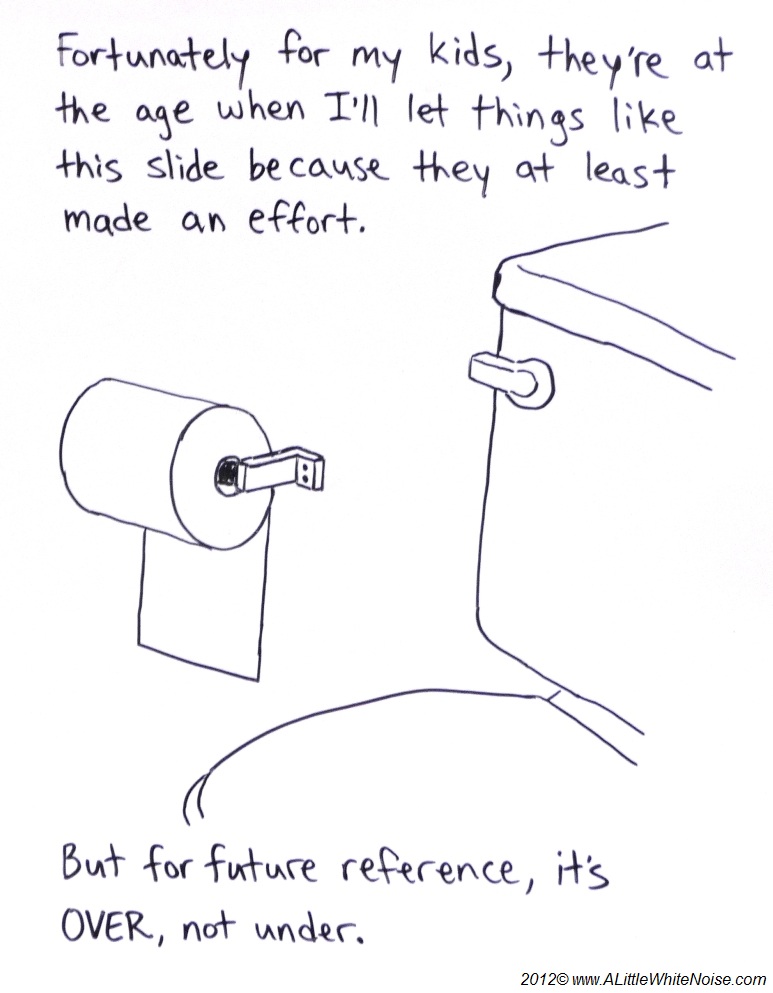 Fortunately for my kids, they're at
the age when I'll let things like
this slide because they at least
made an effort.
But for future reference, it's
OVER, not under.
2012© www.ALittleWhiteNoise.com